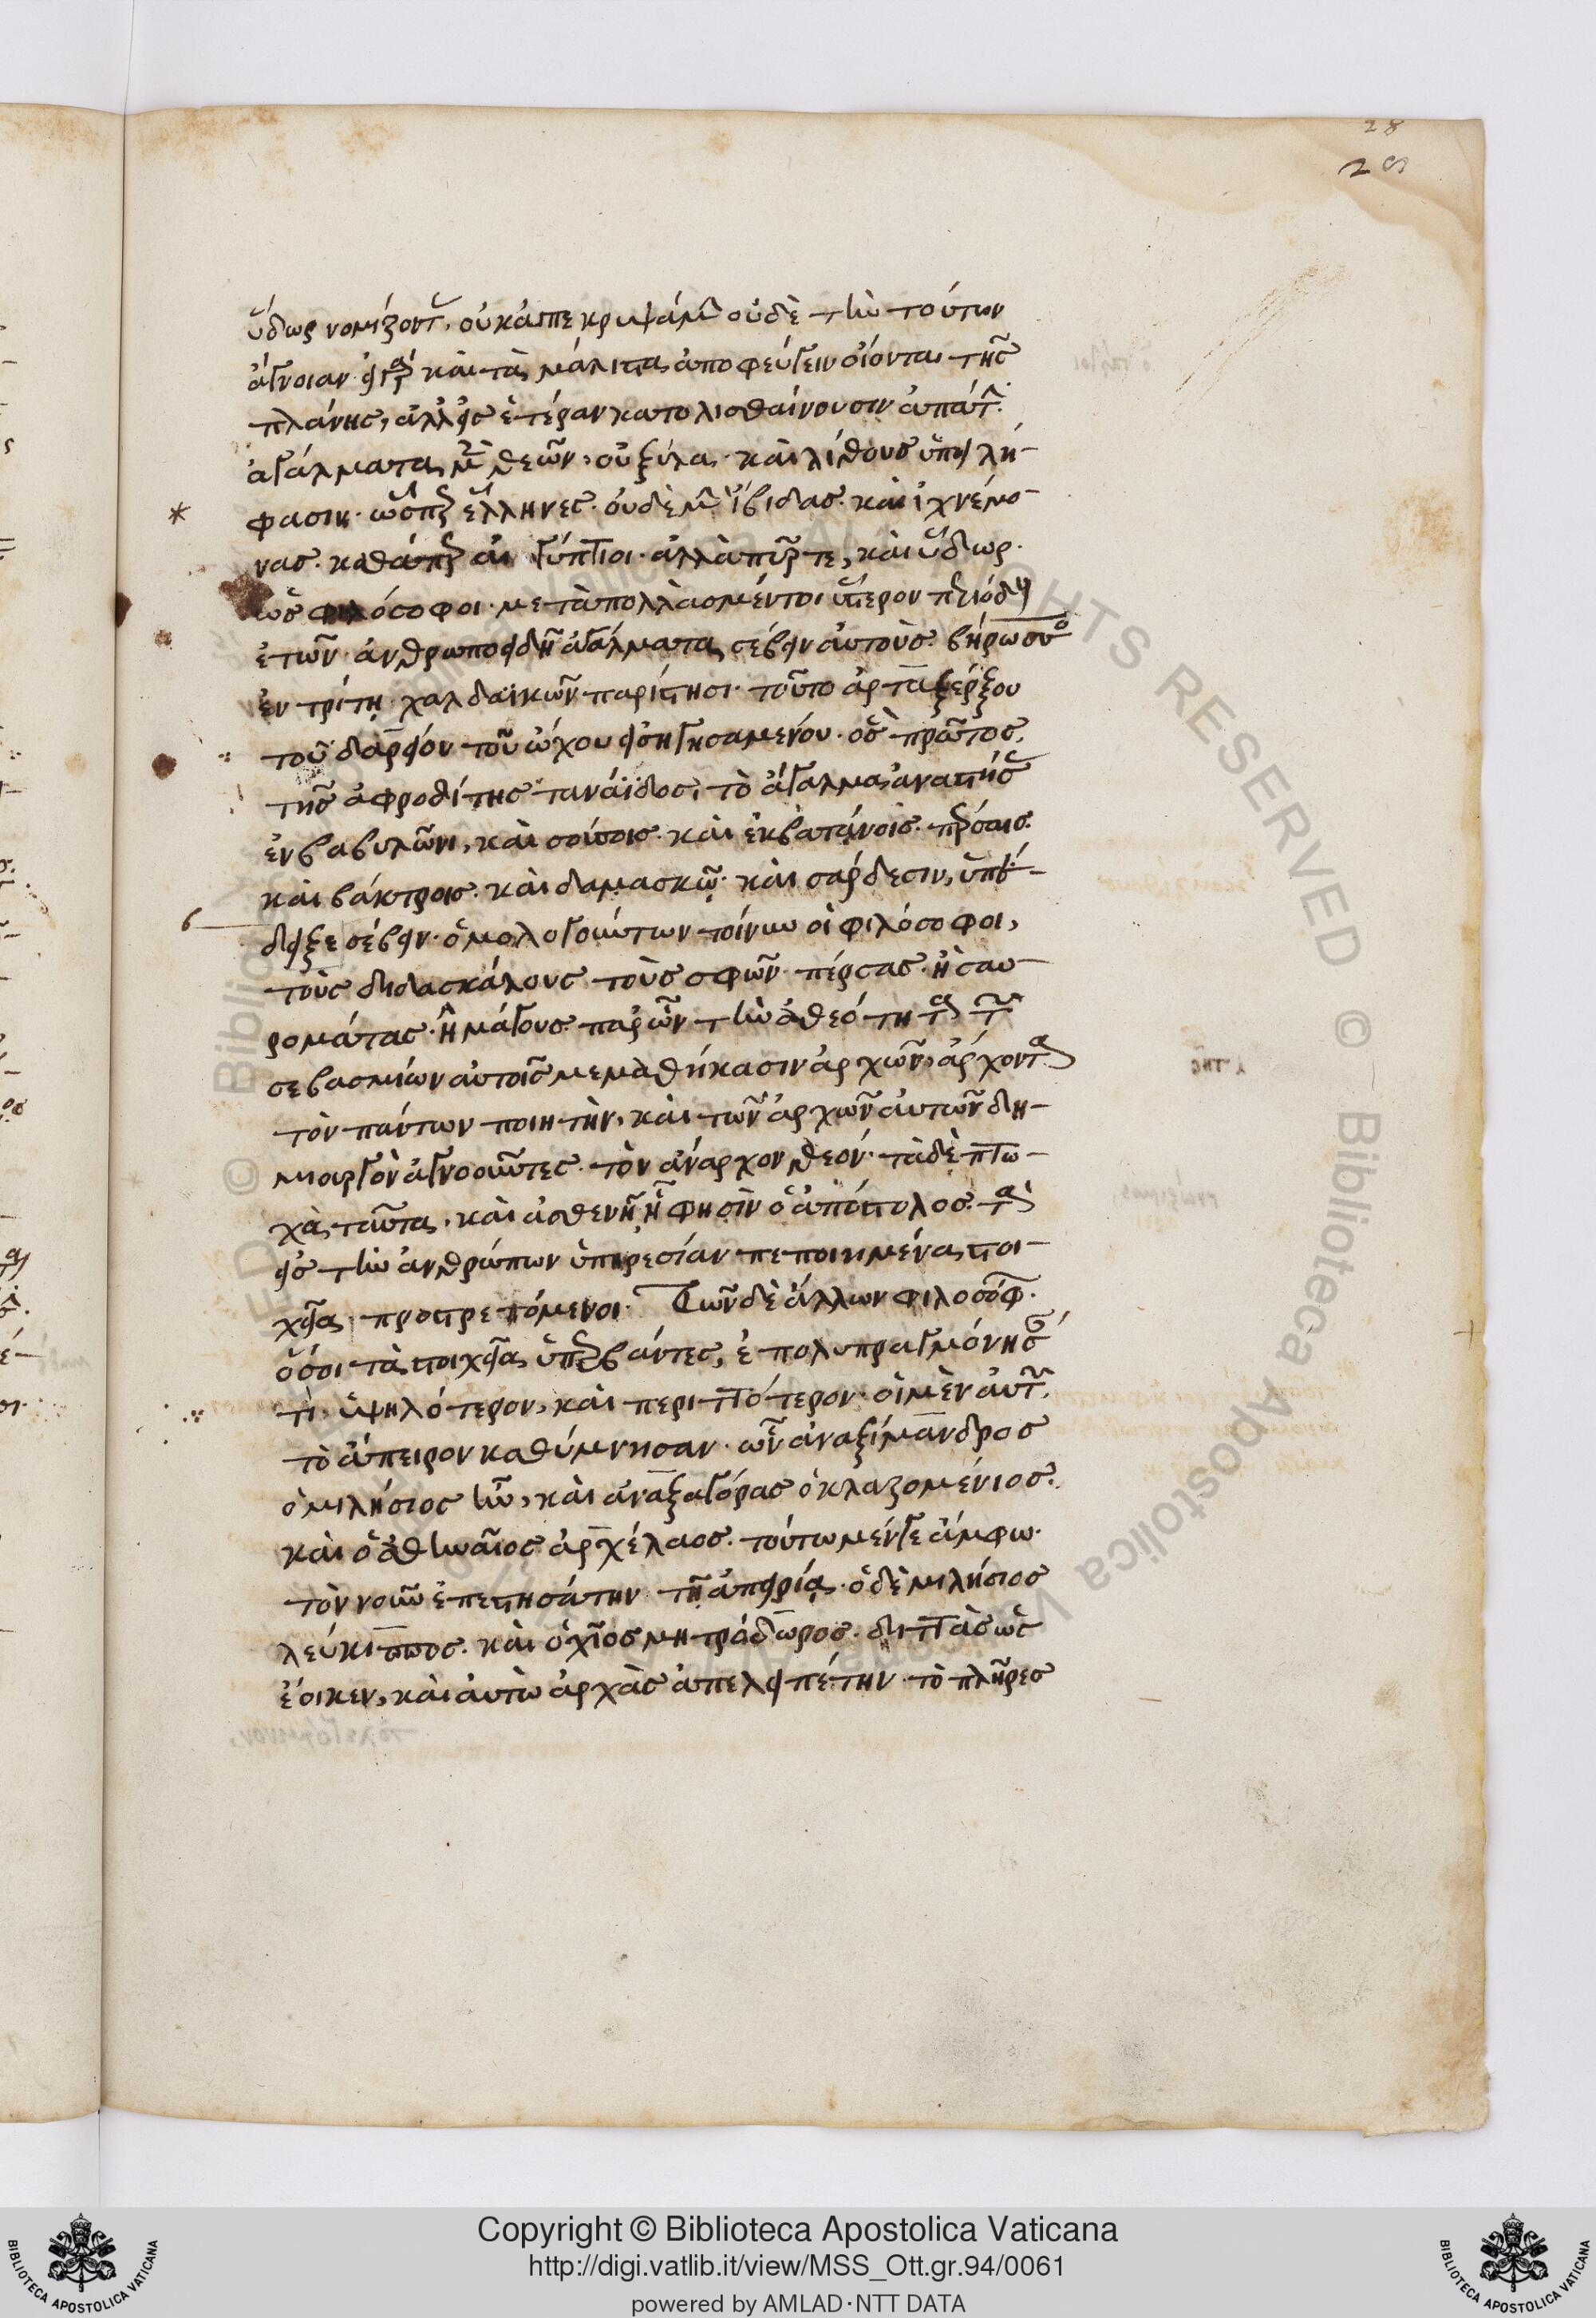 28
28
ὕδωρ νομίζοντ(ες). οὐκ ἀπεκρυψάμ(ην) οὐδὲ τὴν τούτων
ἄγνοιαν· εἰ γ(ὰρ) καὶ τὰ μάλιστα ἀποφεύγειν οἴονται τῆς
πλάνης, ἀλλ' εἰς ἑτέραν κατολισθαίνουσιν ἀπάτ(ην).
ἀγάλματα μ(ὲν) θεῶν, οὐ ξύλα καὶ λίθους ὑπειλή-
φασιν· ὥσπερ ἕλληνες· οὐδὲ μ(ὴν) ἴβιδας καὶ ἰχνεύμο-
νας· καθάπερ αἰγύπτιοι· ἀλλὰ πῦρ τε, καὶ ὕδωρ·
ὡς φιλόσοφοι· μετὰ πολλὰς μέντοι ὕστερον περιόδους
ἐτῶν ἀνθρωποειδῆ ἀγάλματα σέβειν αὐτοὺς βήρωσσος
ἐν τρίτῃ χαλδαικῶν παρίστησι· τοῦτο ἀρταξέρξου
τοῦ δαρείου τοῦ ὤχου εἰσηγησαμένου· ὃς πρῶτος,
τῆς ἀφροδίτης ταναΐδος, τὸ ἄγαλμα ἀναστήσ(ας)
ἐν βαβυλῶνι, καὶ σούσοις καὶ ἐκβατάνοις· πέρσαις
καὶ βάκτροις· καὶ δαμασκῷ· καὶ σάρδεσιν, ὑπέ-
δειξε σέβειν· ὁμολογούντων τοίνυν οἱ φιλόσοφοι,
τοὺς διδασκάλους τοὺς σφῶν πέρσας· ἢ σαυ-
ρομάτας· ἢ μάγους· παρ' ὧν τὴν ἀθεότητα τῶν
σεβασμίων αὐτοῖς μεμαθήκασιν ἀρχῶν, ἄρχοντα
τὸν πάντων ποιητὴν, καὶ τῶν ἀρχῶν αὐτῶν δη-
μιουργὸν ἀγνοοῦντες τὸν ἄναρχον θεόν· τὰ δὲ πτω-
χὰ ταῦτα, καὶ ἀσθενῆ ᾗ φησὶν ὁ ἀπόστολος· τὰ
εἰς τὴν ἀνθρώπων ὑπηρεσίαν πεποιημένα στοι-
χεῖα προστρεπόμενοι. Τῶν δὲ ἄλλων φιλοσόφ(ων)
ὅσοι τὰ στοιχεῖα ὑπερβάντες, ἐπολυπραγμόνησ(άν)
τι ὑψηλότερον, καὶ περιττότερον· οἱ μὲν αὐτῶν,
τὸ ἄπειρον καθύμνησαν· ὧν ἀναξίμανδρος
ὁ μιλήσιος ἦν, καὶ ἀναξαγόρας ὁ κλαζομένιος·
καὶ ὁ ἀθηναῖος ἀρχέλαος· τούτω μέν γε ἄμφω
τὸν νοῦν ἐπεστησάτην τῇ ἀπειρίᾳ· ὁ δὲ μιλήσιος
λεύκιππος· καὶ ὁ χῖος μητρόδωρος· διττὰς ὡς
ἔοικεν, καὶ αὐτὼ ἀρχὰς ἀπελειπέτην τὸ πλῆρες
RIGHTS RESERVED © Biblioteca Apostolica Vaticana
Copyright © Biblioteca Apostolica Vaticana
http://digi.vatlib.it/view/MSS_Ott.gr.94/0061
powered by AMLAD·NTT DATA
BIBLIOTECA APOSTOLICA VATICANA
BIBLIOTECA APOSTOLICA VATICANA